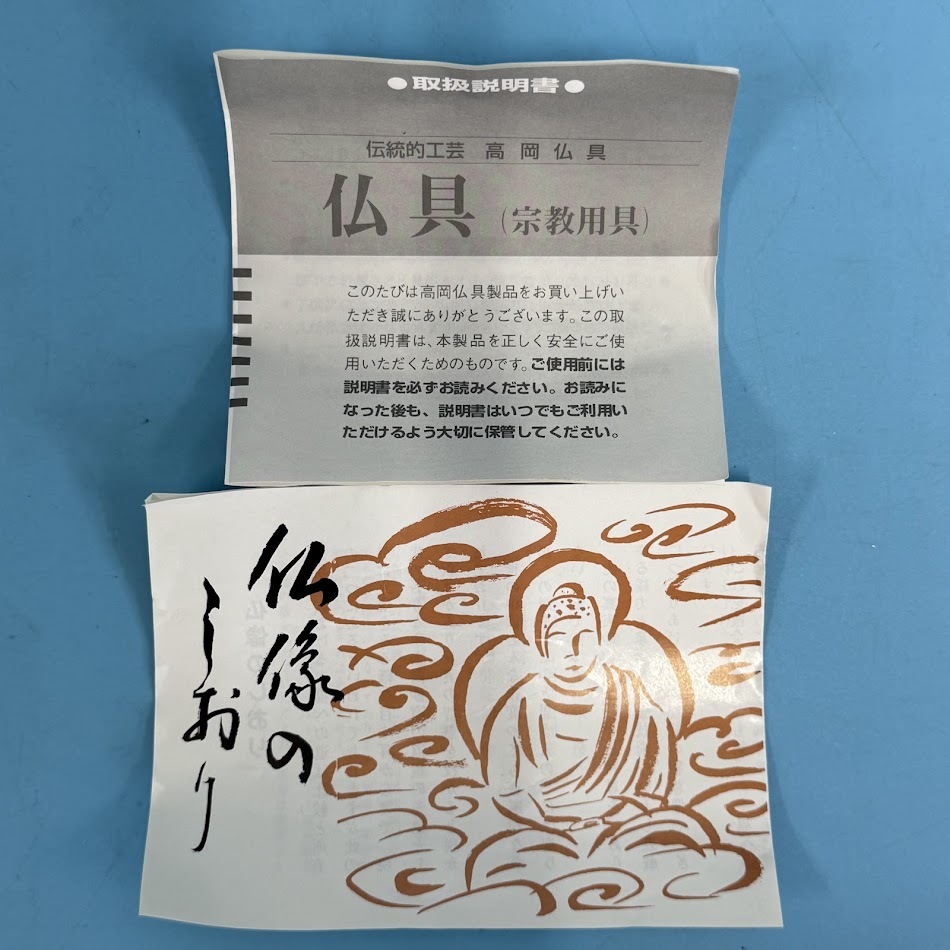 ●取扱説明書●
伝統的工芸 高岡仏具
仏具（宗教用具）
このたびは高岡仏具製品をお買い上げい
ただき誠にありがとうございます。この取
扱説明書は、本製品を正しく安全にご使
用いただくためのものです。ご使用前には
説明書を必ずお読みください。お読みに
なった後も、説明書はいつでもご利用い
ただけるよう大切に保管してください。
仏像の
しおり